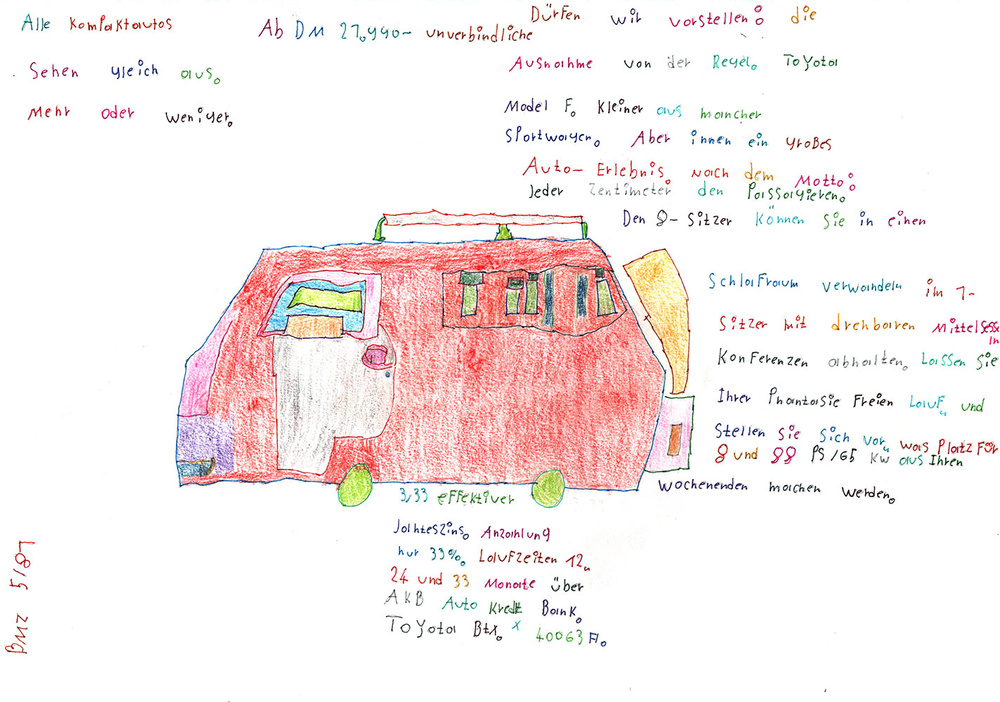 Alle Kompaktautos
Sehen gleich aus.
Mehr oder weniger.
Ab DM 27.990- unverbindliche
Dürfen wir vorstellen: die
Ausnahme von der Regel. Toyota
Model F. Kleiner aus mancher
Sportwagen. Aber innen ein großes
Auto-Erlebnis nach dem Motto:
Jeder Zentimeter den Passagieren.
Den 8-Sitzer können Sie in einen
Schlafraum verwandeln im 7-
Sitzer mit drehbaren Mittelsess
in
Konferenzen abhalten. Lassen Sie
Ihrer Phantasie Freien Lauf, und
Stellen Sie Sich vor, was Platz Für
8 und 88 PS/65 KW aus Ihren
Wochenenden machen werden.
3,33 effektiver
Jahreszins. Anzahlung
nur 33%. Laufzeiten 12,
24 und 33 Monate über
AKB Auto Kredit Bank.
Toyota Btx. * 40063 #.
BMZ 5/87